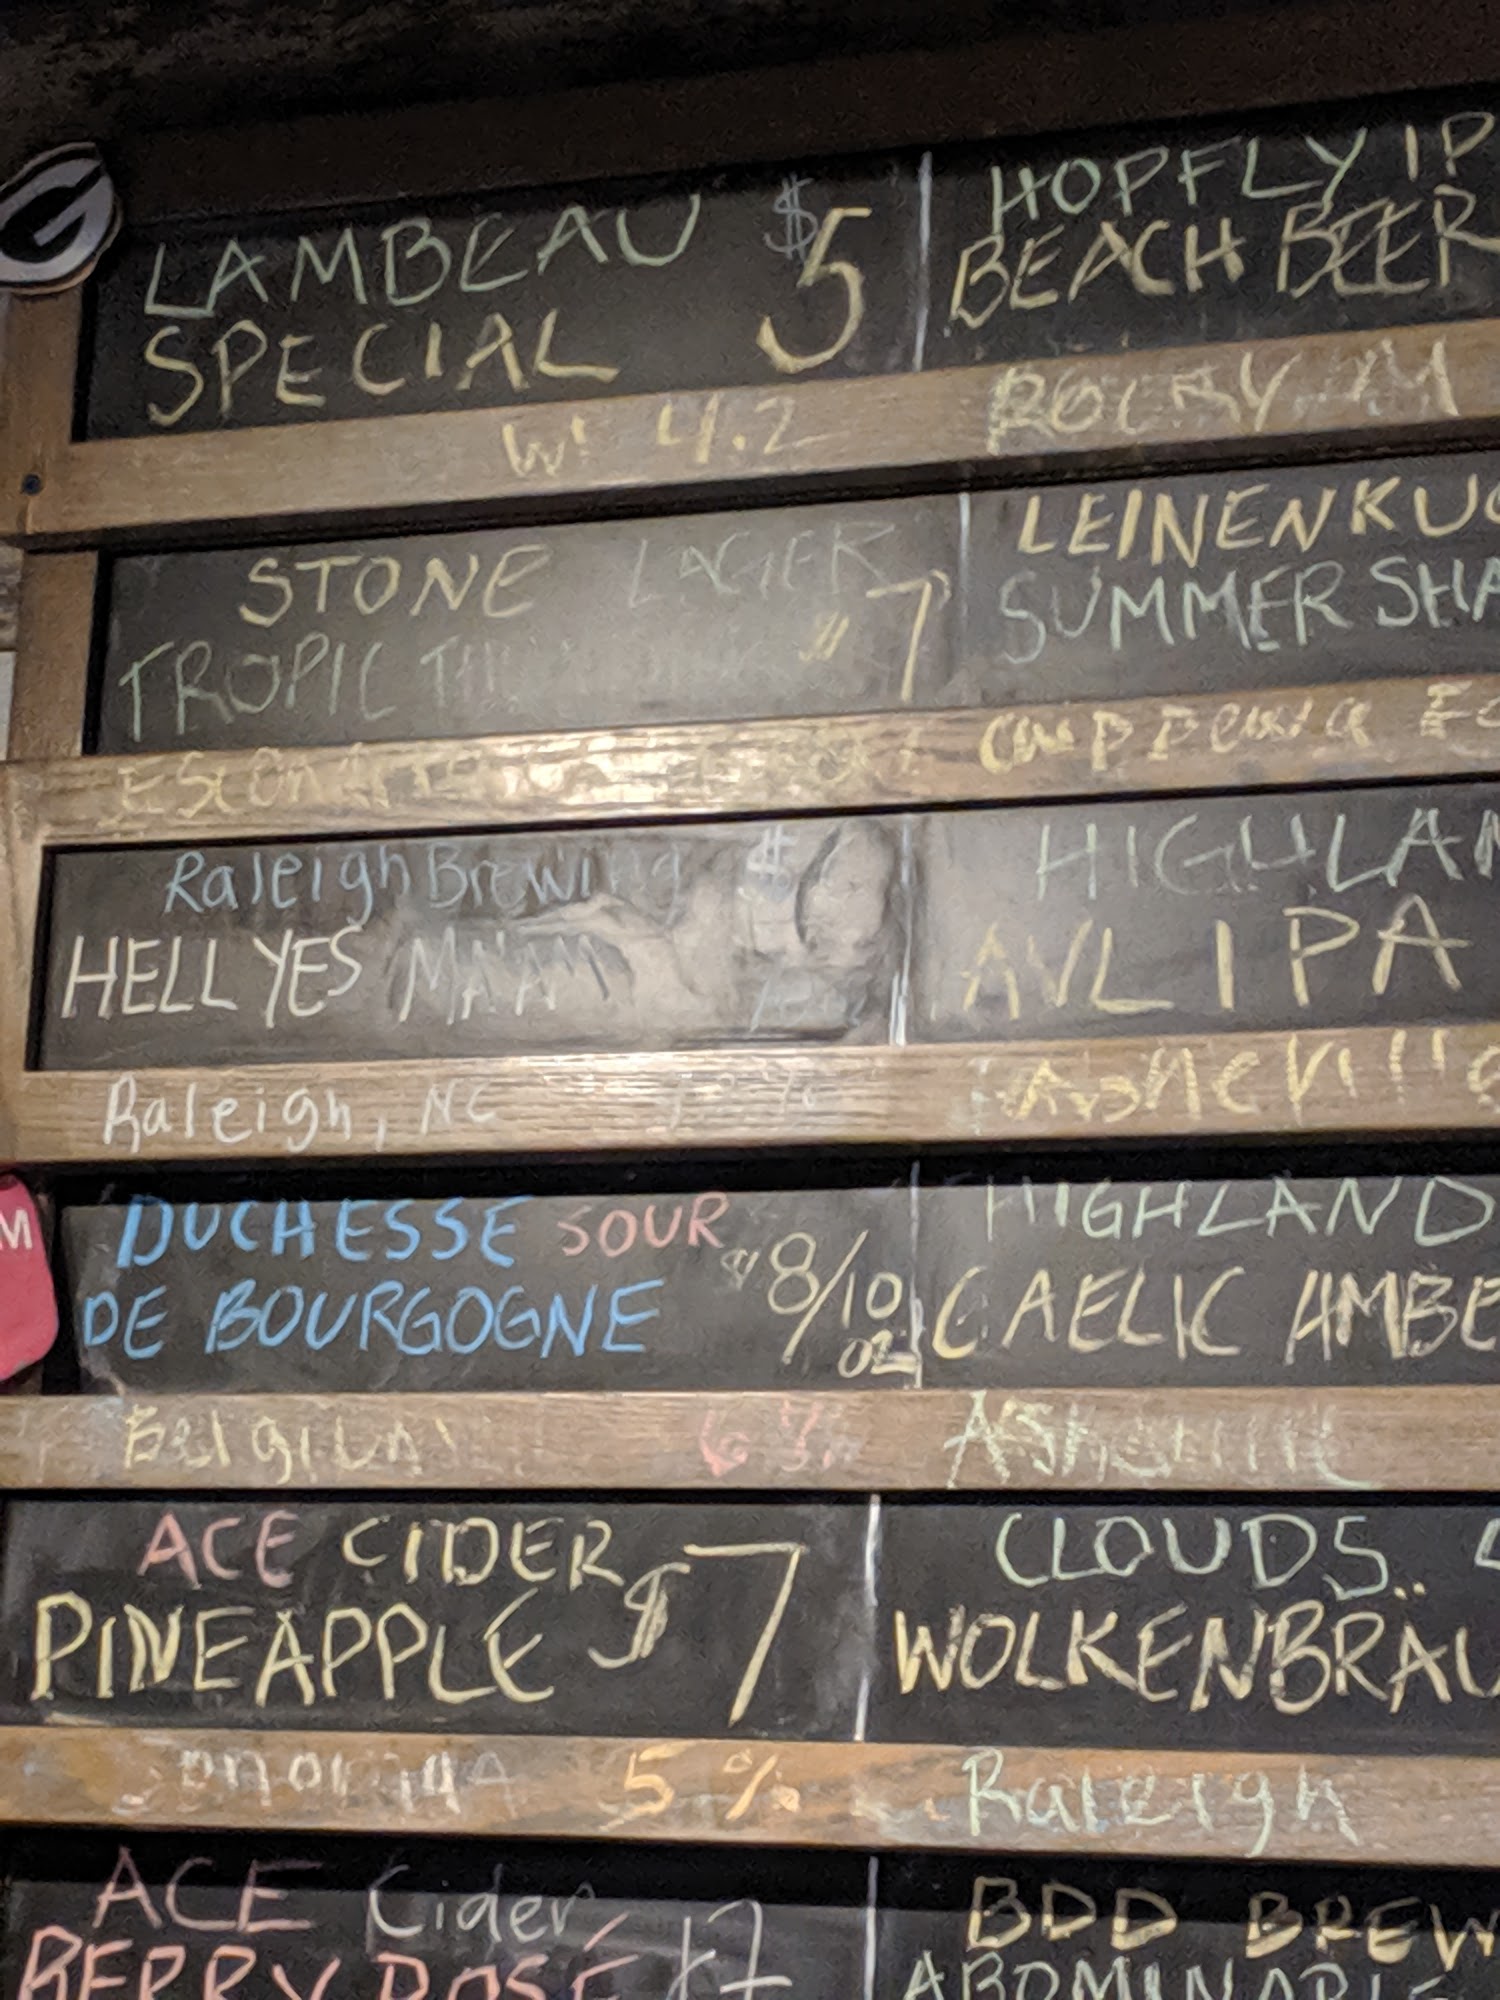 G
LAMBEAU $5
SPECIAL
WI 4.2
STONE LAGER
TROPIC $7
Raleigh Brewing $
HELL YES MA'AM
Raleigh, NC
M
DUCHESSE SOUR
DE BOURGOGNE $8/10 oz
Belgium 6%
ACE CIDER
PINEAPPLE $7
5%
ACE Cider
BERRY ROSÉ
HOPFLY IP
BEACH BEER
ROCKY M
LEINENKU
SUMMER SHA
HIGHLAN
AVL IPA
HIGHLAND
GAELIC AMBE
CLOUDS
WOLKENBRÄU
Raleigh
BDD BREW
ABOMINABLE